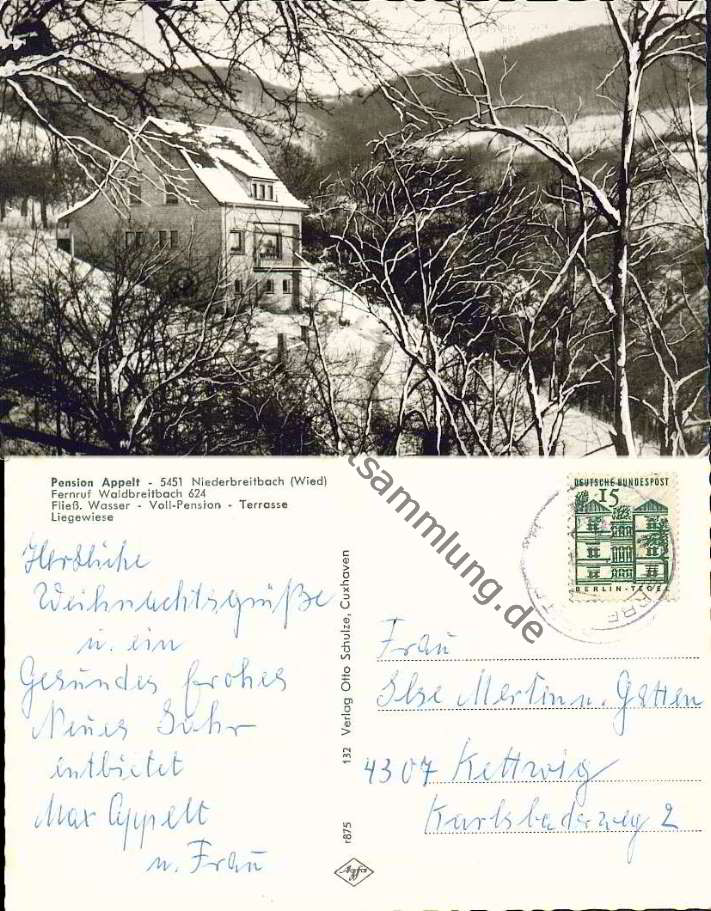 Pension Appelt - 5451 Niederbreitbach (Wied)
Fernruf Waldbreitbach 624
Fließ. Wasser - Voll-Pension - Terrasse
Liegewiese
Herzliche
Weihnachtsgrüße
u. ein
Gesundes frohes
Neues Jahr
entbietet
Max Appelt
u. Frau
132 Verlag Otto Schulze, Cuxhaven
r875
Agfa
DEUTSCHE BUNDESPOST
15
BERLIN-TEGEL
Frau
Ilse Mertin u. Gatten
4307 Kettwig
Karlsbaderweg 2
tsammlung.de